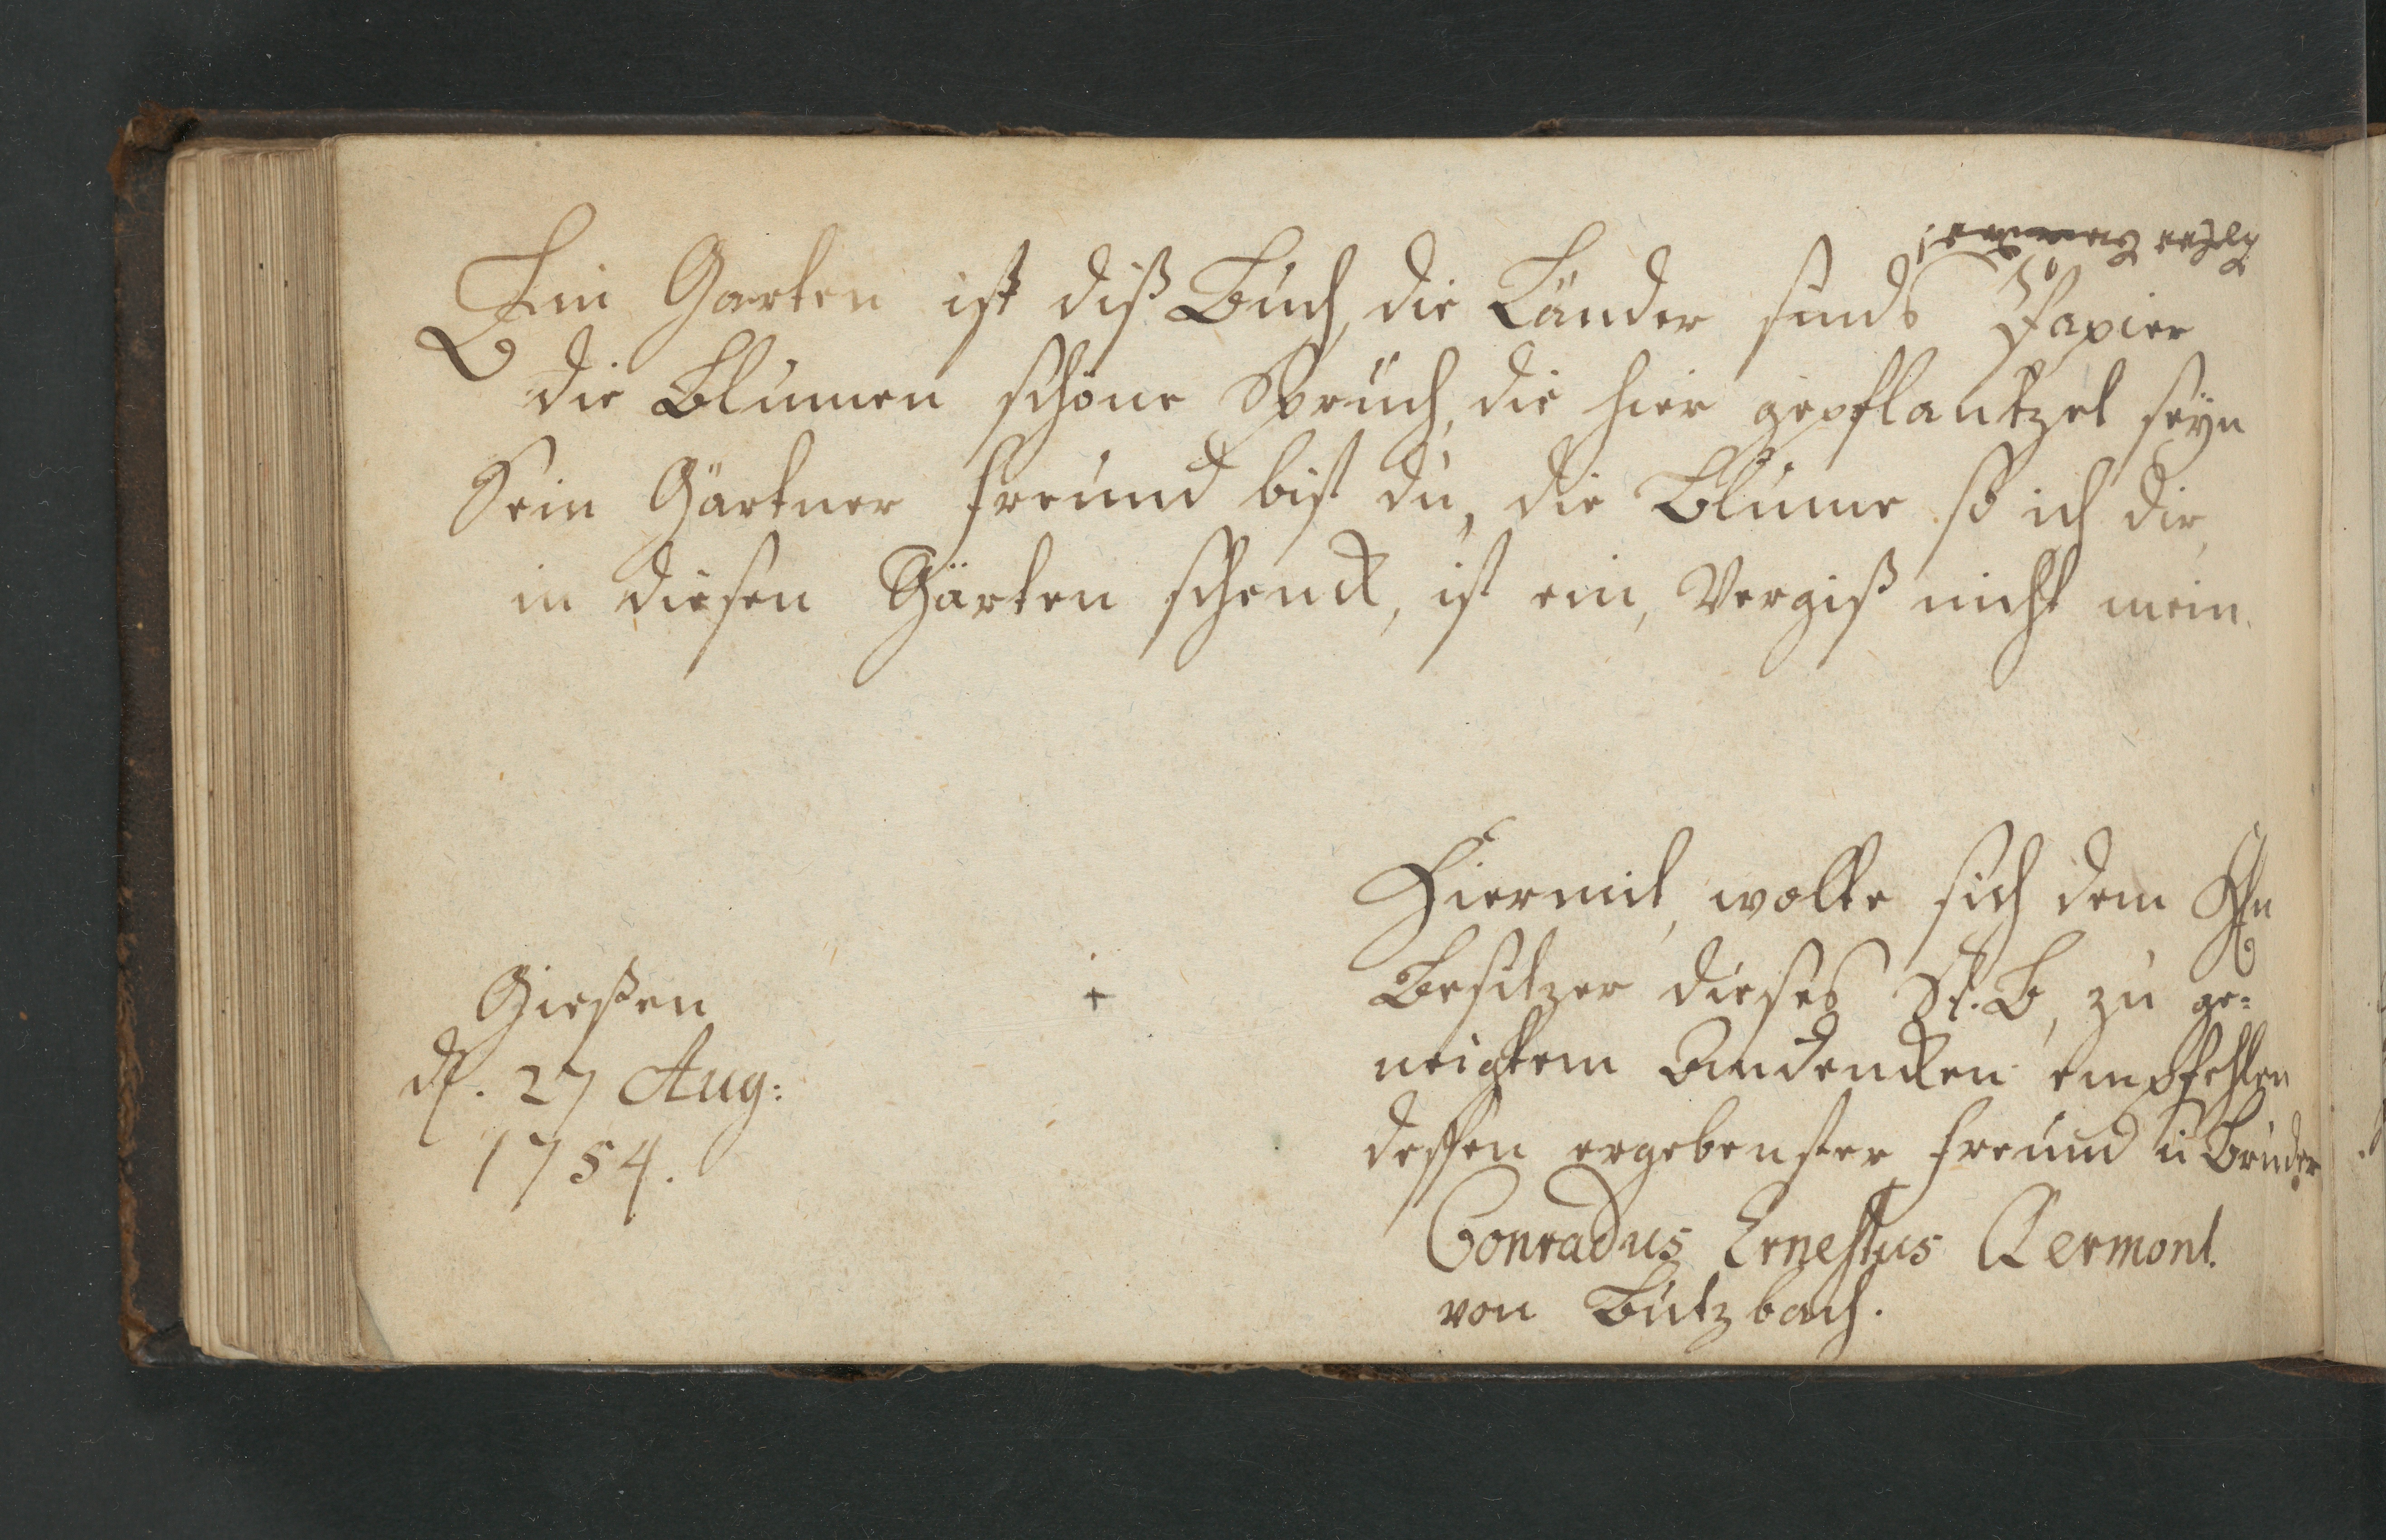 Ein Garten ist diß Buch, die Länder sinds Papier
die Blumen schöne Sprüch, die hier gepflantzet seyn
Sein Gärtner Freund bist du, die Blume so ich dir,
in diesen Gärten schenck, ist ein, Vergiß nicht mein.
Gießen
d. 27 Aug:
1754.
Hiermit, wolte sich dem Hn
Besitzer dieses St. B, zu ge=
neigtem Andencken empfehlen
dessen ergebenster Freund u Bruder
Conradus Ernestus Clermont.
von Butzbach.